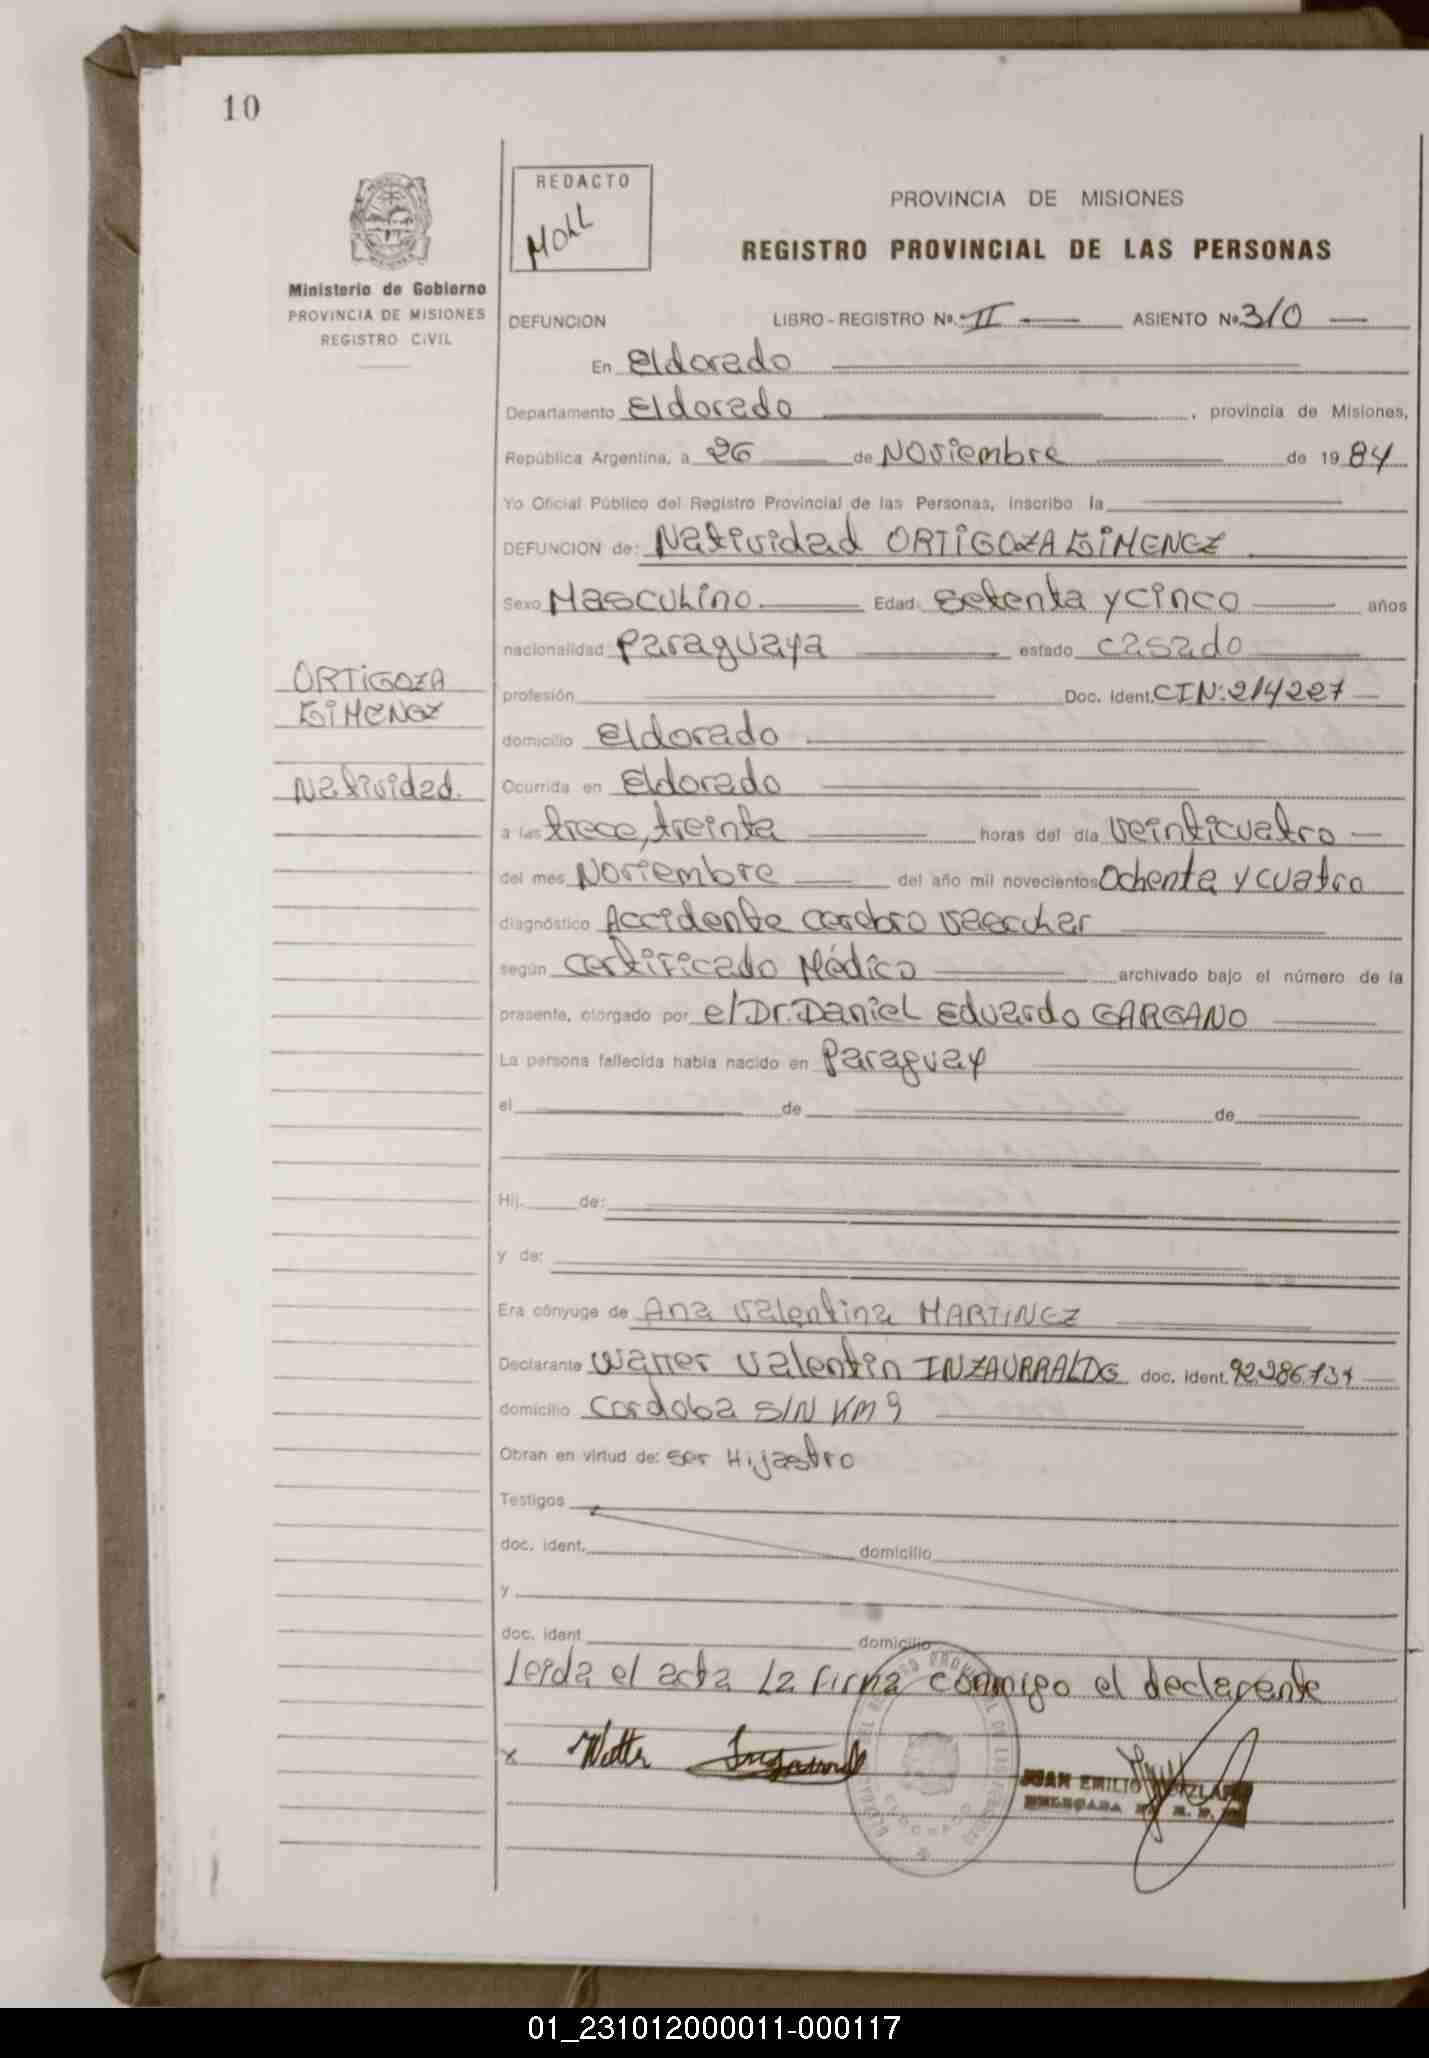 10
REDACTO
MOHL
PROVINCIA DE MISIONES
REGISTRO PROVINCIAL DE LAS PERSONAS
Ministerio de Gobierno
PROVINCIA DE MISIONES
REGISTRO CIVIL
DEFUNCION LIBRO-REGISTRO Nº. II ASIENTO Nº 310
En Eldorado
Departamento Eldorado, provincia de Misiones,
República Argentina, a 26 de Noviembre de 1984
Yo Oficial Público del Registro Provincial de las Personas, inscribo la
DEFUNCION de: Natividad ORTIGOZA GIMENEZ
Sexo Masculino Edad Setenta y cinco años
nacionalidad Paraguaya estado casado
ORTIGOZA
GIMENEZ
Natividad.
profesión Doc. Ident. CIN: 214227
domicilio Eldorado
Ocurrida en Eldorado
a las trece, treinta horas del día veinticuatro
del mes Noviembre del año mil novecientos Ochenta y cuatro
diagnóstico Accidente cerebro vascular
según certificado Médico archivado bajo el número de la
presente, otorgado por el Dr. Daniel Eduardo GARGANO
La persona fallecida había nacido en Paraguay
el de de
Hij. de:
y de:
Era cónyuge de Ana Valentina MARTINEZ
Declarante Walter Valentin INZAURRALDE doc. ident.
domicilio Cordoba S/N KM 9
Obran en virtud de: ser Hijastro
Testigos
doc. ident. domicilio
y
doc. ident domicilio
Leida el acta La firma conmigo el declarante
x Walter
JUAN EMILIO
01_231012000011-000117